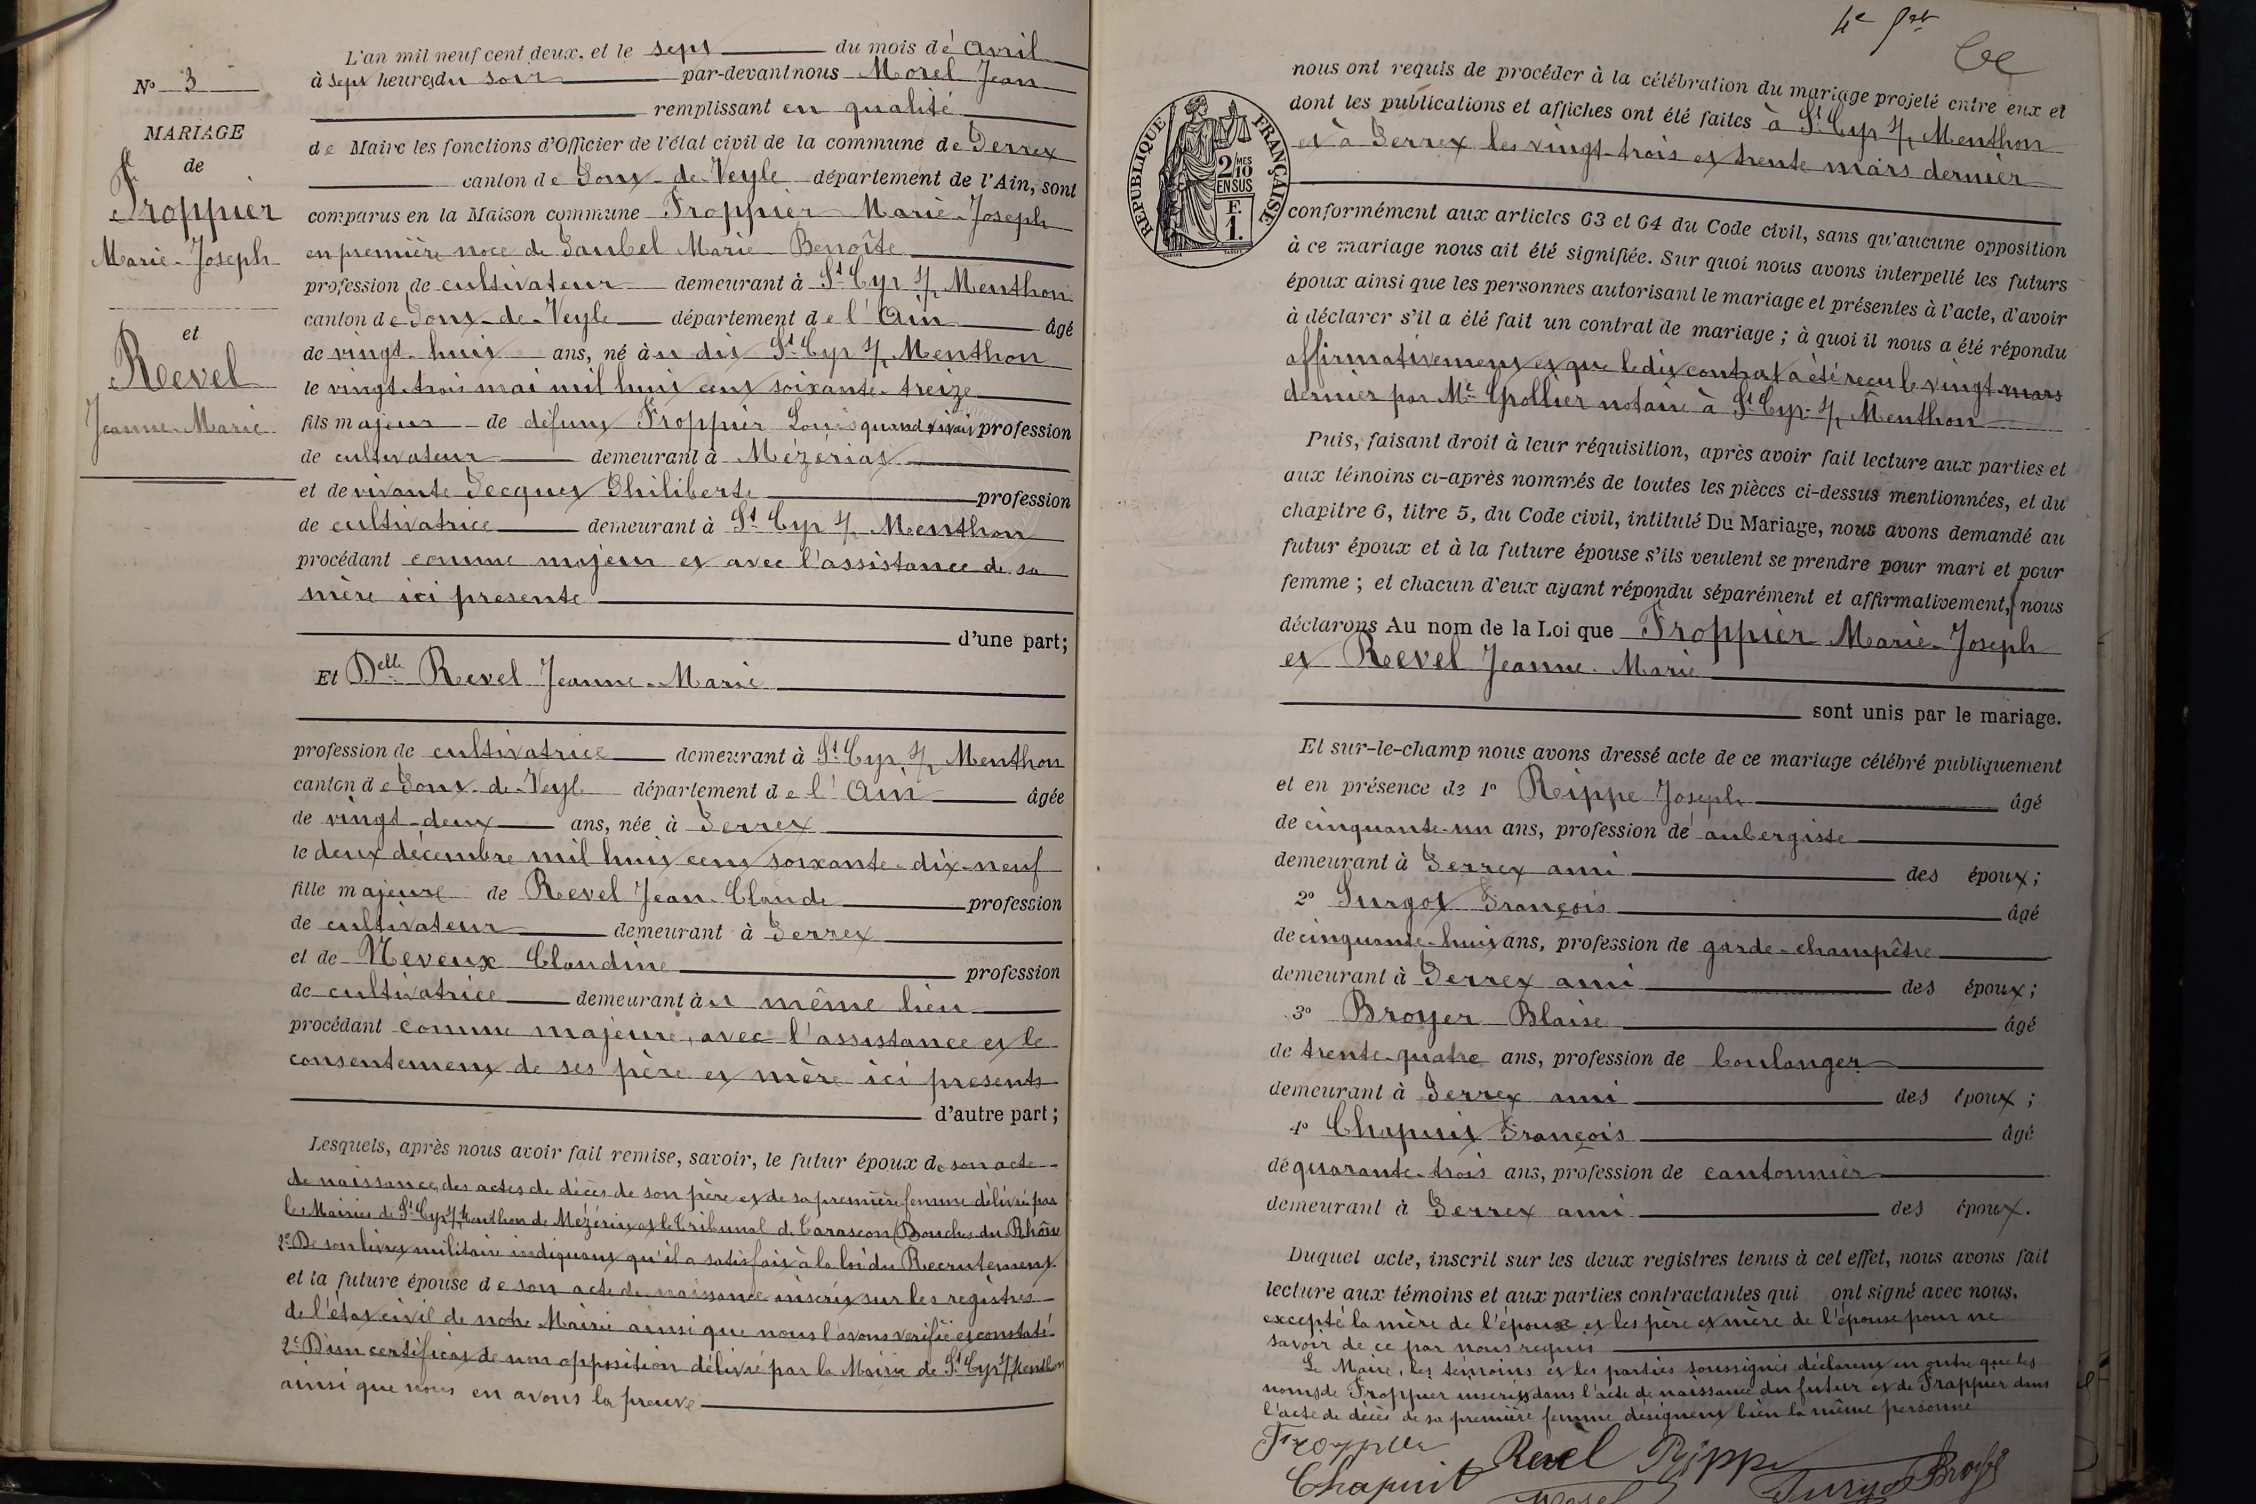 N° 3
MARIAGE
de
Froppier
Marie-Joseph
et
Revel
Jeanne-Marie
L'an mil neuf cent deux, et le sept du mois de avril
à sept heures du soir par-devant nous Morel Jean
remplissant en qualité
de Maire les fonctions d'Officier de l'état civil de la commune de Perrex
canton de Pont-de-Veyle département de l'Ain, sont
comparus en la Maison commune Froppier Marie-Joseph
en première noce de Marie Benoîte
profession de cultivateur demeurant à St Cyr s/ Menthon
canton de Pont-de-Veyle département de l'Ain âgé
de vingt-huit ans, né à u dit St Cyr s/ Menthon
le vingt-trois mai mil huit cent soixante-treize
fils majeur de défunt Froppier Louis quand vivait profession
de cultivateur demeurant à Mézériat
et de vivante Philiberte profession
de cultivatrice demeurant à St Cyr s/ Menthon
procédant comme majeur et avec l'assistance de sa
mère ici presente
d'une part;
Et Delle Revel Jeanne-Marie
profession de cultivatrice demeurant à St Cyr s/ Menthon
canton de Pont-de-Veyle département de l'Ain âgée
de vingt-deux ans, née à Perrex
le deux décembre mil huit cent soixante-dix-neuf
fille majeure de Revel Jean-Claude profession
de cultivateur demeurant à Perrex
et de Neveux Claudine profession
de cultivatrice demeurant à u même lieu
procédant comme majeure, avec l'assistance et le
consentement de ses père et mère ici presents
d'autre part;
Lesquels, après nous avoir fait remise, savoir, le futur époux de son acte
de naissance, des actes de décès de son père et de sa première femme délivré par
les Mairies de St Cyr s/ Menthon de Mézériat et le Tribunal de Tarascon (Bouches du Rhône
2° De son livret militaire indiquant qu'il a satisfait à la loi du Recrutement
et la future épouse de son acte de naissance inscrit sur les registres
de l'état civil de notre Mairie ainsi que nous l'avons verifié et constaté
2° D'un certificat de non opposition délivré par la Mairie de St Cyr s/ Menthon
ainsi que nous en avons la preuve
4e
RÉPUBLIQUE FRANÇAISE
2/10 MES
EN SUS
F.
1.
nous ont requis de procéder à la célébration du mariage projeté entre eux et
dont les publications et affiches ont été faites à St Cyr s/ Menthon
et à Perrex les vingt-trois et trente mars dernier
conformément aux articles 63 et 64 du Code civil, sans qu'aucune opposition
à ce mariage nous ait été signifiée. Sur quoi nous avons interpellé les futurs
époux ainsi que les personnes autorisant le mariage et présentes à l'acte, d'avoir
à déclarer s'il a été fait un contrat de mariage ; à quoi il nous a été répondu
affirmativement et que le dit contrat a été reçu le vingt mars
dernier par Me Grollier notaire à St Cyr s/ Menthon
Puis, faisant droit à leur réquisition, après avoir fait lecture aux parties et
aux témoins ci-après nommés de toutes les pièces ci-dessus mentionnées, et du
chapitre 6, titre 5, du Code civil, intitulé Du Mariage, nous avons demandé au
futur époux et à la future épouse s'ils veulent se prendre pour mari et pour
femme ; et chacun d'eux ayant répondu séparément et affirmativement, nous
déclarons Au nom de la Loi que Froppier Marie-Joseph
et Revel Jeanne-Marie
sont unis par le mariage.
Et sur-le-champ nous avons dressé acte de ce mariage célébré publiquement
et en présence de 1° Rippe Joseph âgé
de cinquante-un ans, profession de aubergiste
demeurant à Perrex ami des époux;
2° Surgot François âgé
de cinquante-huit ans, profession de garde-champêtre
demeurant à Perrex ami des époux;
3° Broyer Blaise âgé
de trente-quatre ans, profession de boulanger
demeurant à Perrex ami des époux ;
4° Chapuit François âgé
de quarante-trois ans, profession de cantonnier
demeurant à Perrex ami des époux.
Duquel acte, inscrit sur les deux registres tenus à cet effet, nous avons fait
lecture aux témoins et aux parties contractantes qui ont signé avec nous.
excepté la mère de l'époux et les père et mère de l'épouse pour ne
savoir de ce par nous requis
Le Maire, les témoins et les parties soussignés déclarent en outre que les
noms de Froppier inscrit dans l'acte de naissance du futur et de Frappier dans
l'acte de décès de sa première femme désignent bien la même personne
Froppier
Revel Rippe
Chapuit
Morel
Broyer